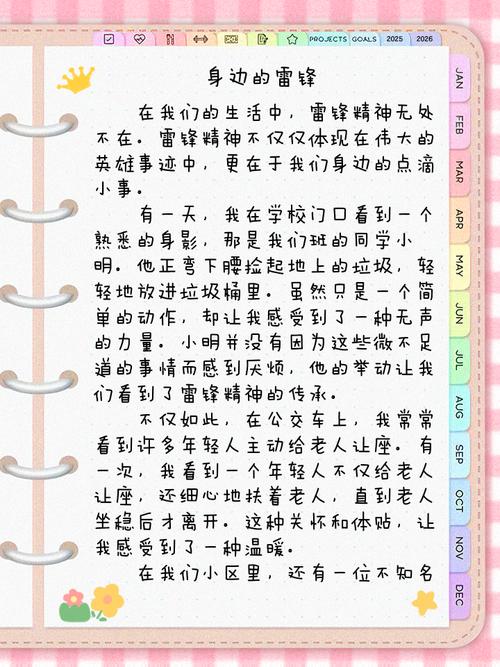 PROJECTS GOALS 2025 2026
身边的雷锋
在我们的生活中，雷锋精神无处
不在。雷锋精神不仅仅体现在伟大的
英雄事迹中，更在于我们身边的点滴
小事。
有一天，我在学校门口看到一个
熟悉的身影，那是我们班的同学小
明。他正弯下腰捡起地上的垃圾，轻
轻地放进垃圾桶里。虽然只是一个简
单的动作，却让我感受到了一种无声
的力量。小明并没有因为这些微不足
道的事情而感到厌烦，他的举动让我
们看到了雷锋精神的传承。
不仅如此，在公交车上，我常常
看到许多年轻人主动给老人让座。有
一次，我看到一个年轻人不仅给老人
让座，还细心地扶着老人，直到老人
坐稳后才离开。这种关怀和体贴，让
我感受到了一种温暖。
在我们小区里，还有一位不知名
JAN
FEB
MAR
APR
MAY
JUN
JUL
AUG
SEP
OCT
NOV
DEC